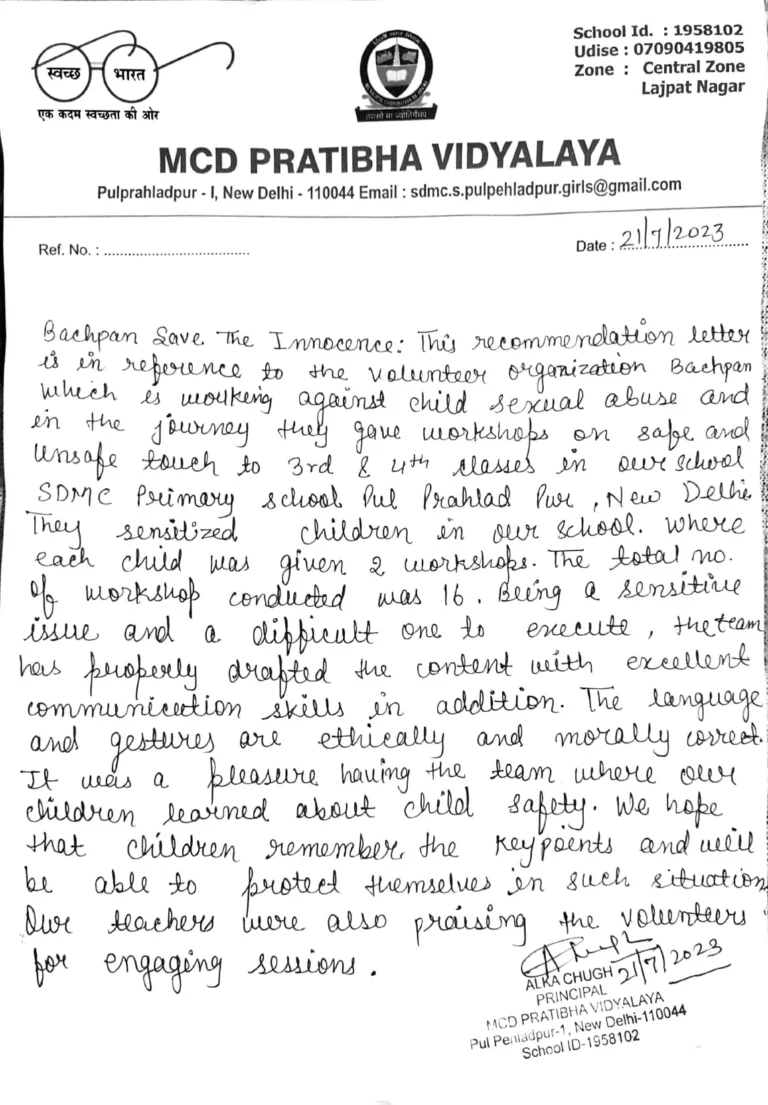 School Id. : 1958102
Udise : 07090419805
Zone : Central Zone
Lajpat Nagar
स्वच्छ भारत
एक कदम स्वच्छता की ओर
MCD PRATIBHA VIDYALAYA
Pulprahladpur - I, New Delhi - 110044 Email : sdmc.s.pulpehladpur.girls@gmail.com
Ref. No. : ....................................
Date : 21/7/2023
Bachpan Save The Innocence: This recommendation letter
is in reference to the volunteer organization Bachpan
which is working against child sexual abuse and
in the journey they gave workshops on safe and
unsafe touch to 3rd & 4th classes in our school
SDMC Primary school Pul Prahlad Pur, New Delhi.
They sensitized children in our school. where
each child was given 2 workshops. The total no.
of workshop conducted was 16. Being a sensitive
issue and a difficult one to execute, the team
has properly drafted the content with excellent
communication skills in addition. The language
and gestures are ethically and morally correct.
It was a pleasure having the team where our
children learned about child safety. We hope
that children remember the keypoints and will
be able to protect themselves in such situation.
Our teachers were also praising the volunteers
for engaging sessions.
21/7/2023
ALKA CHUGH
PRINCIPAL
MCD PRATIBHA VIDYALAYA
Pul Pehladpur-1, New Delhi-110044
School ID-1958102